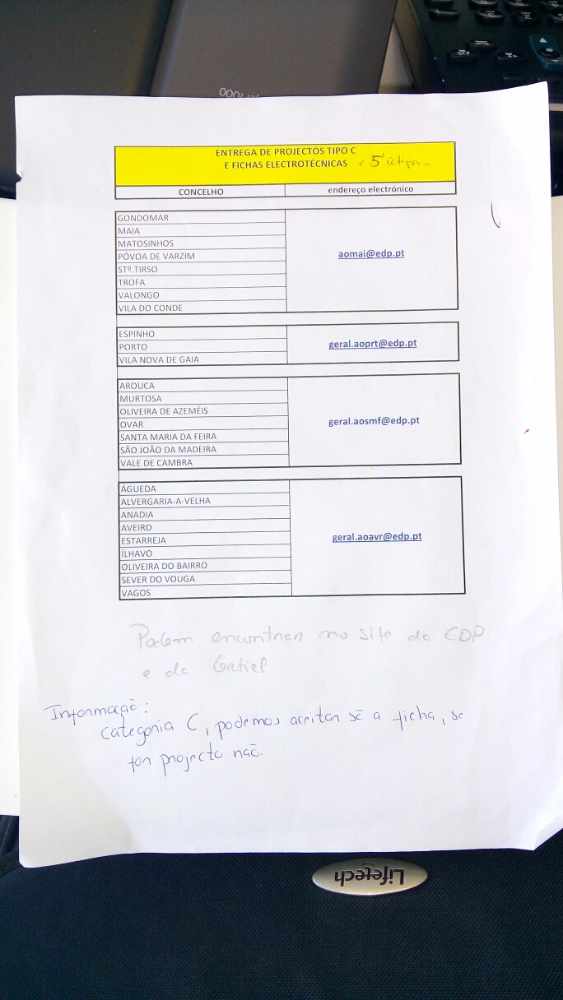 ENTREGA DE PROJECTOS TIPO C
E FICHAS ELECTROTÉCNICAS 5ª
CONCELHO endereço electrónico
GONDOMAR
MAIA
MATOSINHOS
PÓVOA DE VARZIM
STº.TIRSO
TROFA
VALONGO
VILA DO CONDE
aomai@edp.pt
ESPINHO
PORTO
VILA NOVA DE GAIA
geral.aoprt@edp.pt
AROUCA
MURTOSA
OLIVEIRA DE AZEMÉIS
OVAR
SANTA MARIA DA FEIRA
SÃO JOÃO DA MADEIRA
VALE DE CAMBRA
geral.aosmf@edp.pt
ÁGUEDA
ALVERGARIA-A-VELHA
ANADIA
AVEIRO
ESTARREJA
ÍLHAVO
OLIVEIRA DO BAIRRO
SEVER DO VOUGA
VAGOS
geral.aoavr@edp.pt
Podem encontrar no site da EDP
e da Certiel
Informação:
categoria C, podemos aceitar só a ficha, se
for projecto não.
Lifetech